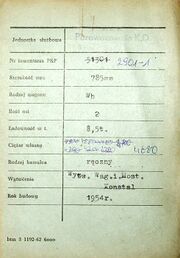 Jednostka służbowa
Nr inwentarza PKP 51301 2901-1
Szerokość toru 785mm
Rodzaj wagonu Wh
Ilość osi 2
Ładowność w t. 8,5t.
Ciężar własny 4680
Rodzaj hamulca ręczny
Wytwórnia Wytw. Wag.i.Most.
Konstal
Rok budowy 1954r.